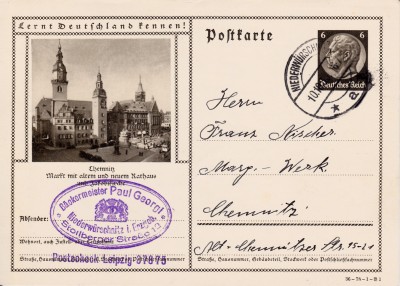 Lernt Deutschland kennen!
Postkarte
6 6
Deutsches Reich
NIEDERWÜRSCHN
10.
a
Chemnitz
Markt mit altem und neuem Rathaus
und Jakobikirche
Bäckermeister Paul Georgi
Niederwürschnitz i. Erzgeb.
Stollberger Straße 13
Absender:
Wohnort, auch Zustell- oder
Postscheck Leipzig 37875
Straße, Hausnummer, Gebäudeteil, Stockwerk
Herrn
Franz Kircher
Marg.-Werk.
Chemnitz
Alt-Chemnitzer Str. 15-21
Straße, Hausnummer, Gebäudeteil, Stockwerk oder Postschließfachnummer
36-74-1-B1